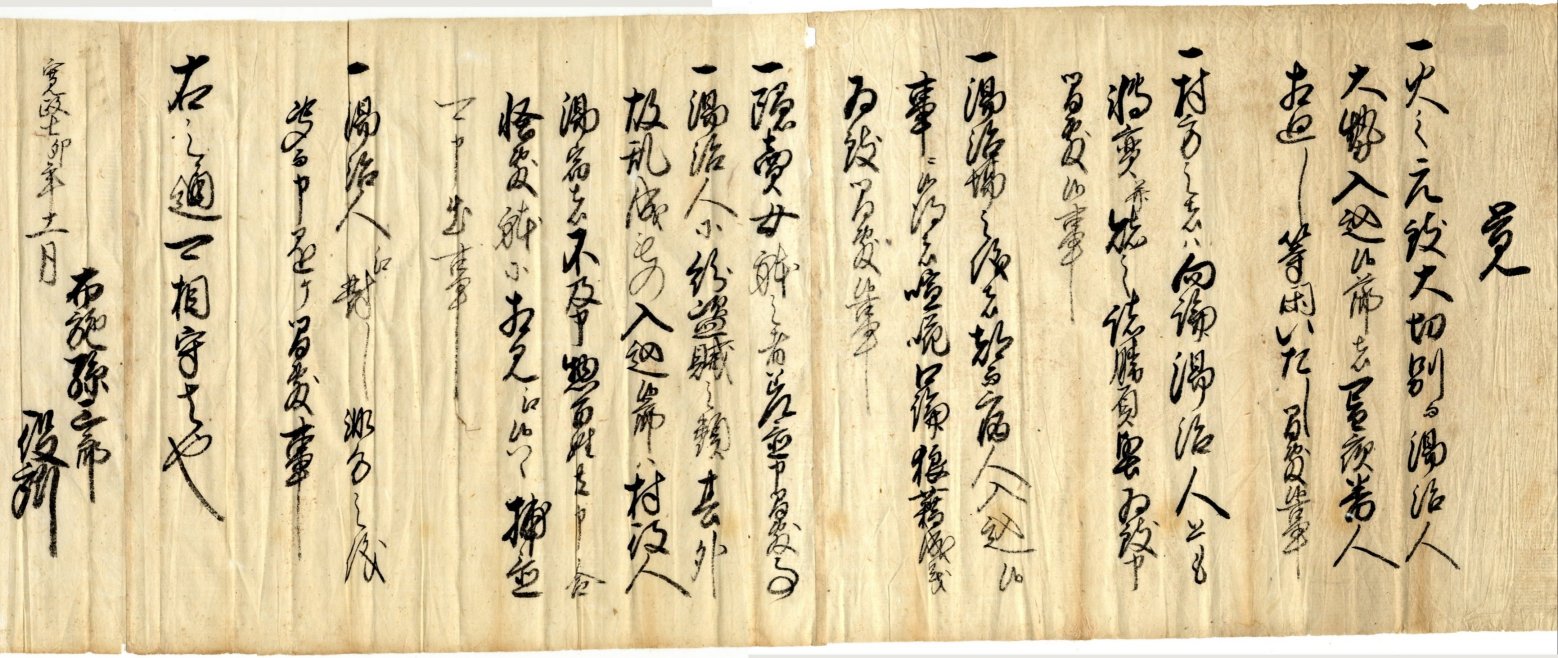 覚
一火之元致大切別而湯治人
大勢入込候節者昼夜番人
相廻し等閑いたし間敷候事
一村方之者ハ勿論湯治人共
博奕并諸之諸勝負堅為致申
間敷候事
一湯治場之儀者都而病人入込候
事ニ候得者喧嘩口論狼藉ヶ間敷儀
為致間敷候事
一隠売女躰之者差置申間敷事
一湯治人ニ紛盗賊之類其外
胡乱成もの入込候節ハ村役人
湯宿者不及申惣百姓申合
怪敷躰ニ相見へ候ハヽ捕置
可申出事
一湯治人江対し非分之儀
等申懸ヶ間敷事
右之通可相守者也
寛政七卯年十一月
布施孫三郎
役所